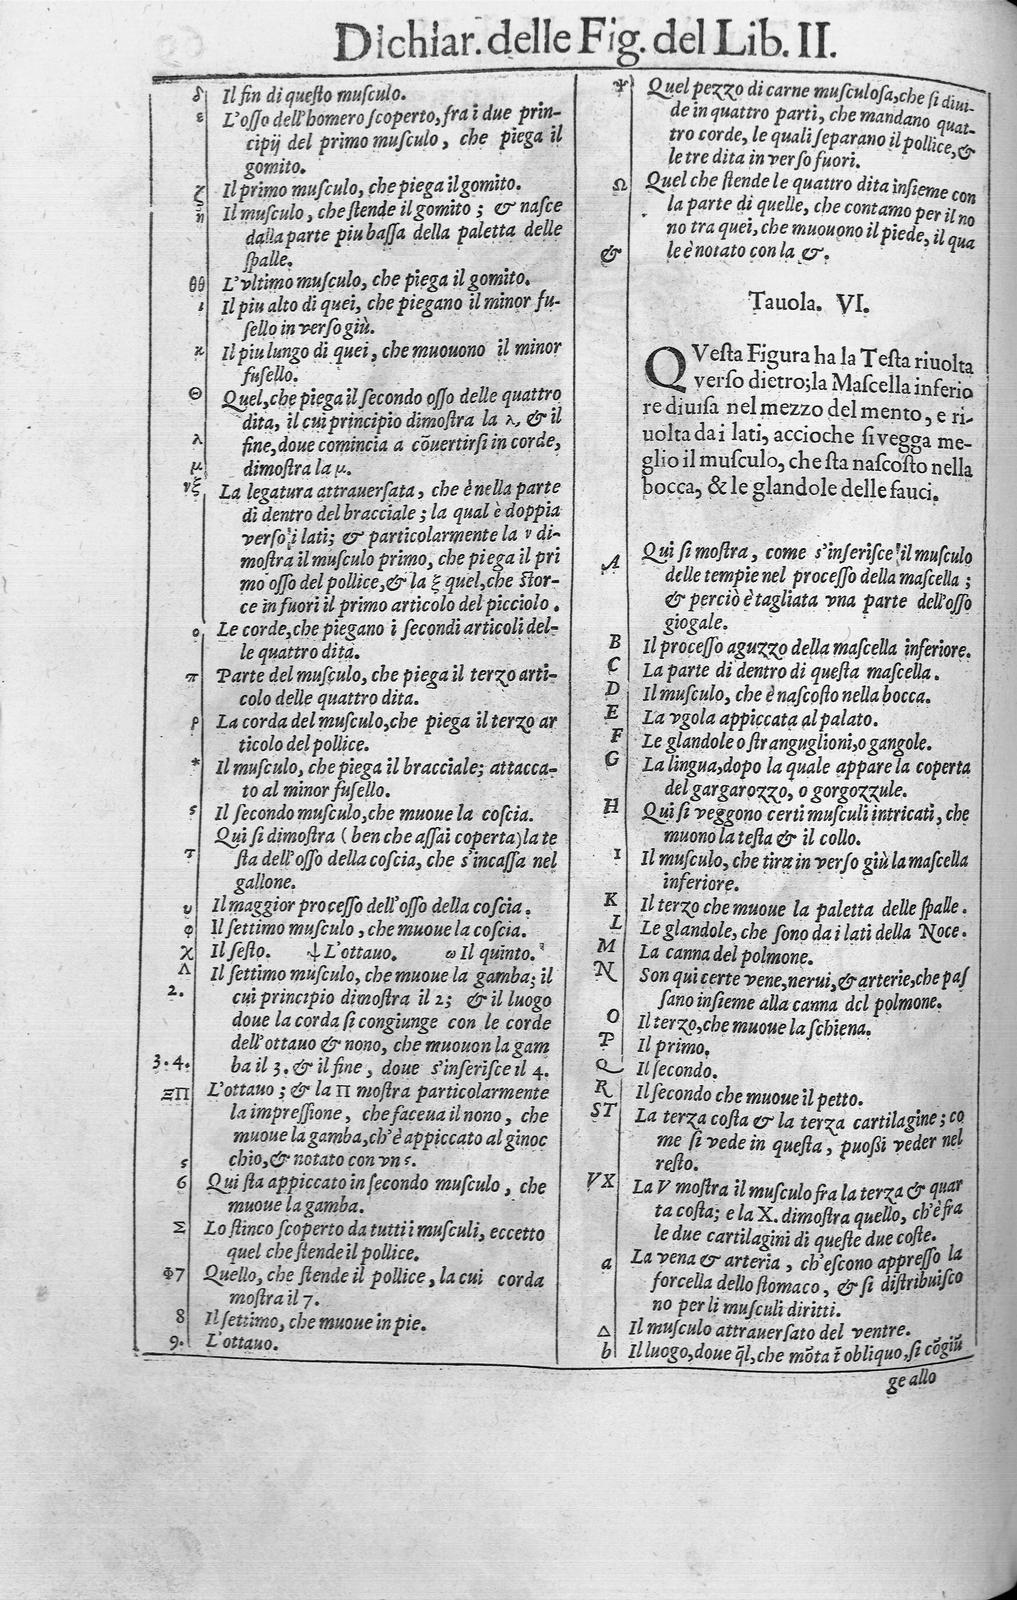 Dichiar. delle Fig. del Lib. II.
δ Il fin di questo musculo.
ε L'osso dell'homero scoperto, fra i due prin-
cipij del primo musculo, che piega il
gomito.
ζ Il primo musculo, che piega il gomito.
η Il musculo, che stende il gomito; & nasce
dalla parte piu bassa della paletta delle
spalle.
θθ L'vltimo musculo, che piega il gomito.
ι Il piu alto di quei, che piegano il minor fu-
sello in verso giù.
κ Il piu lungo di quei, che muouono il minor
fusello.
Θ Quel, che piega il secondo osso delle quattro
dita, il cui principio dimostra la λ, & il
λ fine, doue comincia a cõuertirsi in corde,
μ dimostra la μ.
νξ La legatura attrauersata, che è nella parte
di dentro del bracciale; la qual è doppia
verso i lati; & particolarmente la ν di-
mostra il musculo primo, che piega il pri
mo osso del pollice, & la ξ quel, che stor-
ce in fuori il primo articolo del picciolo.
ο Le corde, che piegano i secondi articoli del-
le quattro dita.
π Parte del musculo, che piega il terzo arti-
colo delle quattro dita.
ρ La corda del musculo, che piega il terzo ar
ticolo del pollice.
* Il musculo, che piega il bracciale; attacca-
to al minor fusello.
ς Il secondo musculo, che muoue la coscia.
Qui si dimostra (ben che assai coperta) la te
τ sta dell'osso della coscia, che s'incassa nel
gallone.
υ Il maggior processo dell'osso della coscia.
φ Il settimo musculo, che muoue la coscia.
χ Il sesto. ψ L'ottauo. ω Il quinto.
Λ Il settimo musculo, che muoue la gamba; il
2. cui principio dimostra il 2; & il luogo
doue la corda si congiunge con le corde
dell'ottauo & nono, che muouon la gam
3. 4. ba il 3. & il fine, doue s'inserisce il 4.
ΞΠ L'ottauo; & la Π mostra particolarmente
la impressione, che faceua il nono, che
muoue la gamba, ch'è appiccato al ginoc
5 chio, & notato con vn 5.
6 Qui sta appiccato in secondo musculo, che
muoue la gamba.
Σ Lo stinco scoperto da tutti i musculi, eccetto
quel che stende il pollice.
Φ7 Quello, che stende il pollice, la cui corda
mostra il 7.
8 Il settimo, che muoue in pie.
9. L'ottauo.
Ψ Quel pezzo di carne musculosa, che si diui-
de in quattro parti, che mandano quat-
tro corde, le quali separano il pollice, &
le tre dita in verso fuori.
Ω Quel che stende le quattro dita insieme con
la parte di quelle, che contamo per il no
no tra quei, che muouono il piede, il qua
& le è notato con la &.
Tauola. VI.
QVesta Figura ha la Testa riuolta
verso dietro; la Mascella inferio
re diuisa nel mezzo del mento, e ri-
uolta da i lati, accioche si vegga me-
glio il musculo, che sta nascosto nella
bocca, & le glandole delle fauci.
A Qui si mostra, come s'inserisce il musculo
delle tempie nel processo della mascella;
& perciò è tagliata vna parte dell'osso
giogale.
B Il processo aguzzo della mascella inferiore.
C La parte di dentro di questa mascella.
D Il musculo, che è nascosto nella bocca.
E La vgola appiccata al palato.
F Le glandole o stranguglioni, o gangole.
G La lingua, dopo la quale appare la coperta
del gargarozzo, o gorgozzule.
H Qui si veggono certi musculi intricati, che
muono la testa & il collo.
I Il musculo, che tira in verso giù la mascella
inferiore.
K Il terzo che muoue la paletta delle spalle.
L Le glandole, che sono da i lati della Noce.
M La canna del polmone.
N Son qui certe vene, nerui, & arterie, che pas
sano insieme alla canna del polmone.
O Il terzo, che muoue la schiena.
P Il primo.
Q Il secondo.
R Il secondo che muoue il petto.
ST La terza costa & la terza cartilagine; co
me si vede in questa, puossi veder nel
resto.
VX La V mostra il musculo fra la terza & quar
ta costa; e la X. dimostra quello, ch'è fra
le due cartilagini di queste due coste.
a La vena & arteria, ch'escono appresso la
forcella dello stomaco, & si distribuisco
no per li musculi diritti.
Δ Il musculo attrauersato del ventre.
b Il luogo, doue q̃l, che mõta ĩ obliquo, si cõgiũ
ge allo